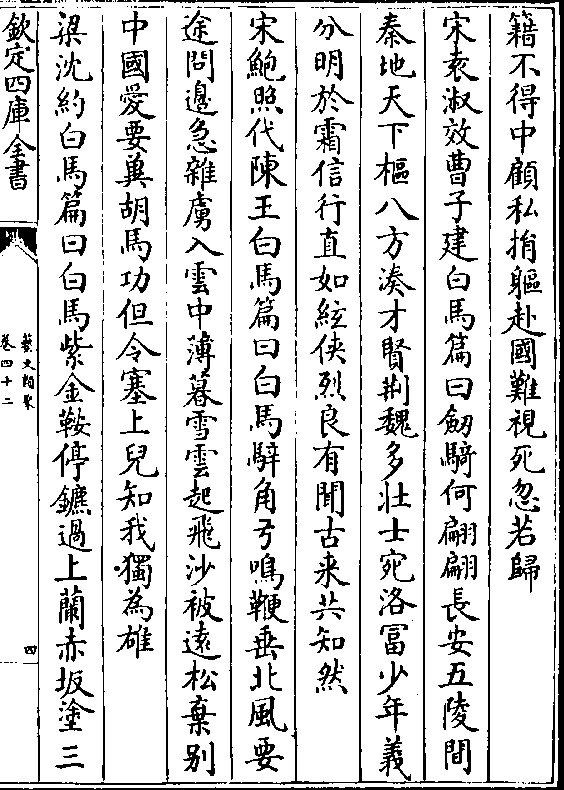 籍不得中顧私捐軀赴國難視死忽若歸
宋袁淑效曹子建白馬篇曰劒騎何翩翩長安五陵間
秦地天下樞八方湊才賢荆魏多壯士宛洛冨少年義
分明於霜信行直如絃俠烈良有聞古来共知然
宋鮑照代陳王白馬篇曰白馬騂角弓鳴鞭乗北風要
途問邉急雜虜入雲中薄暮雪雲起飛沙被逺松棄别
中國愛要兾胡馬功但令塞上兒知我獨為雄
梁沈約白馬篇曰白馬紫金鞍停鑣過上蘭赤坂塗三
欽定四庫全書
藝文類聚
卷四十二
四